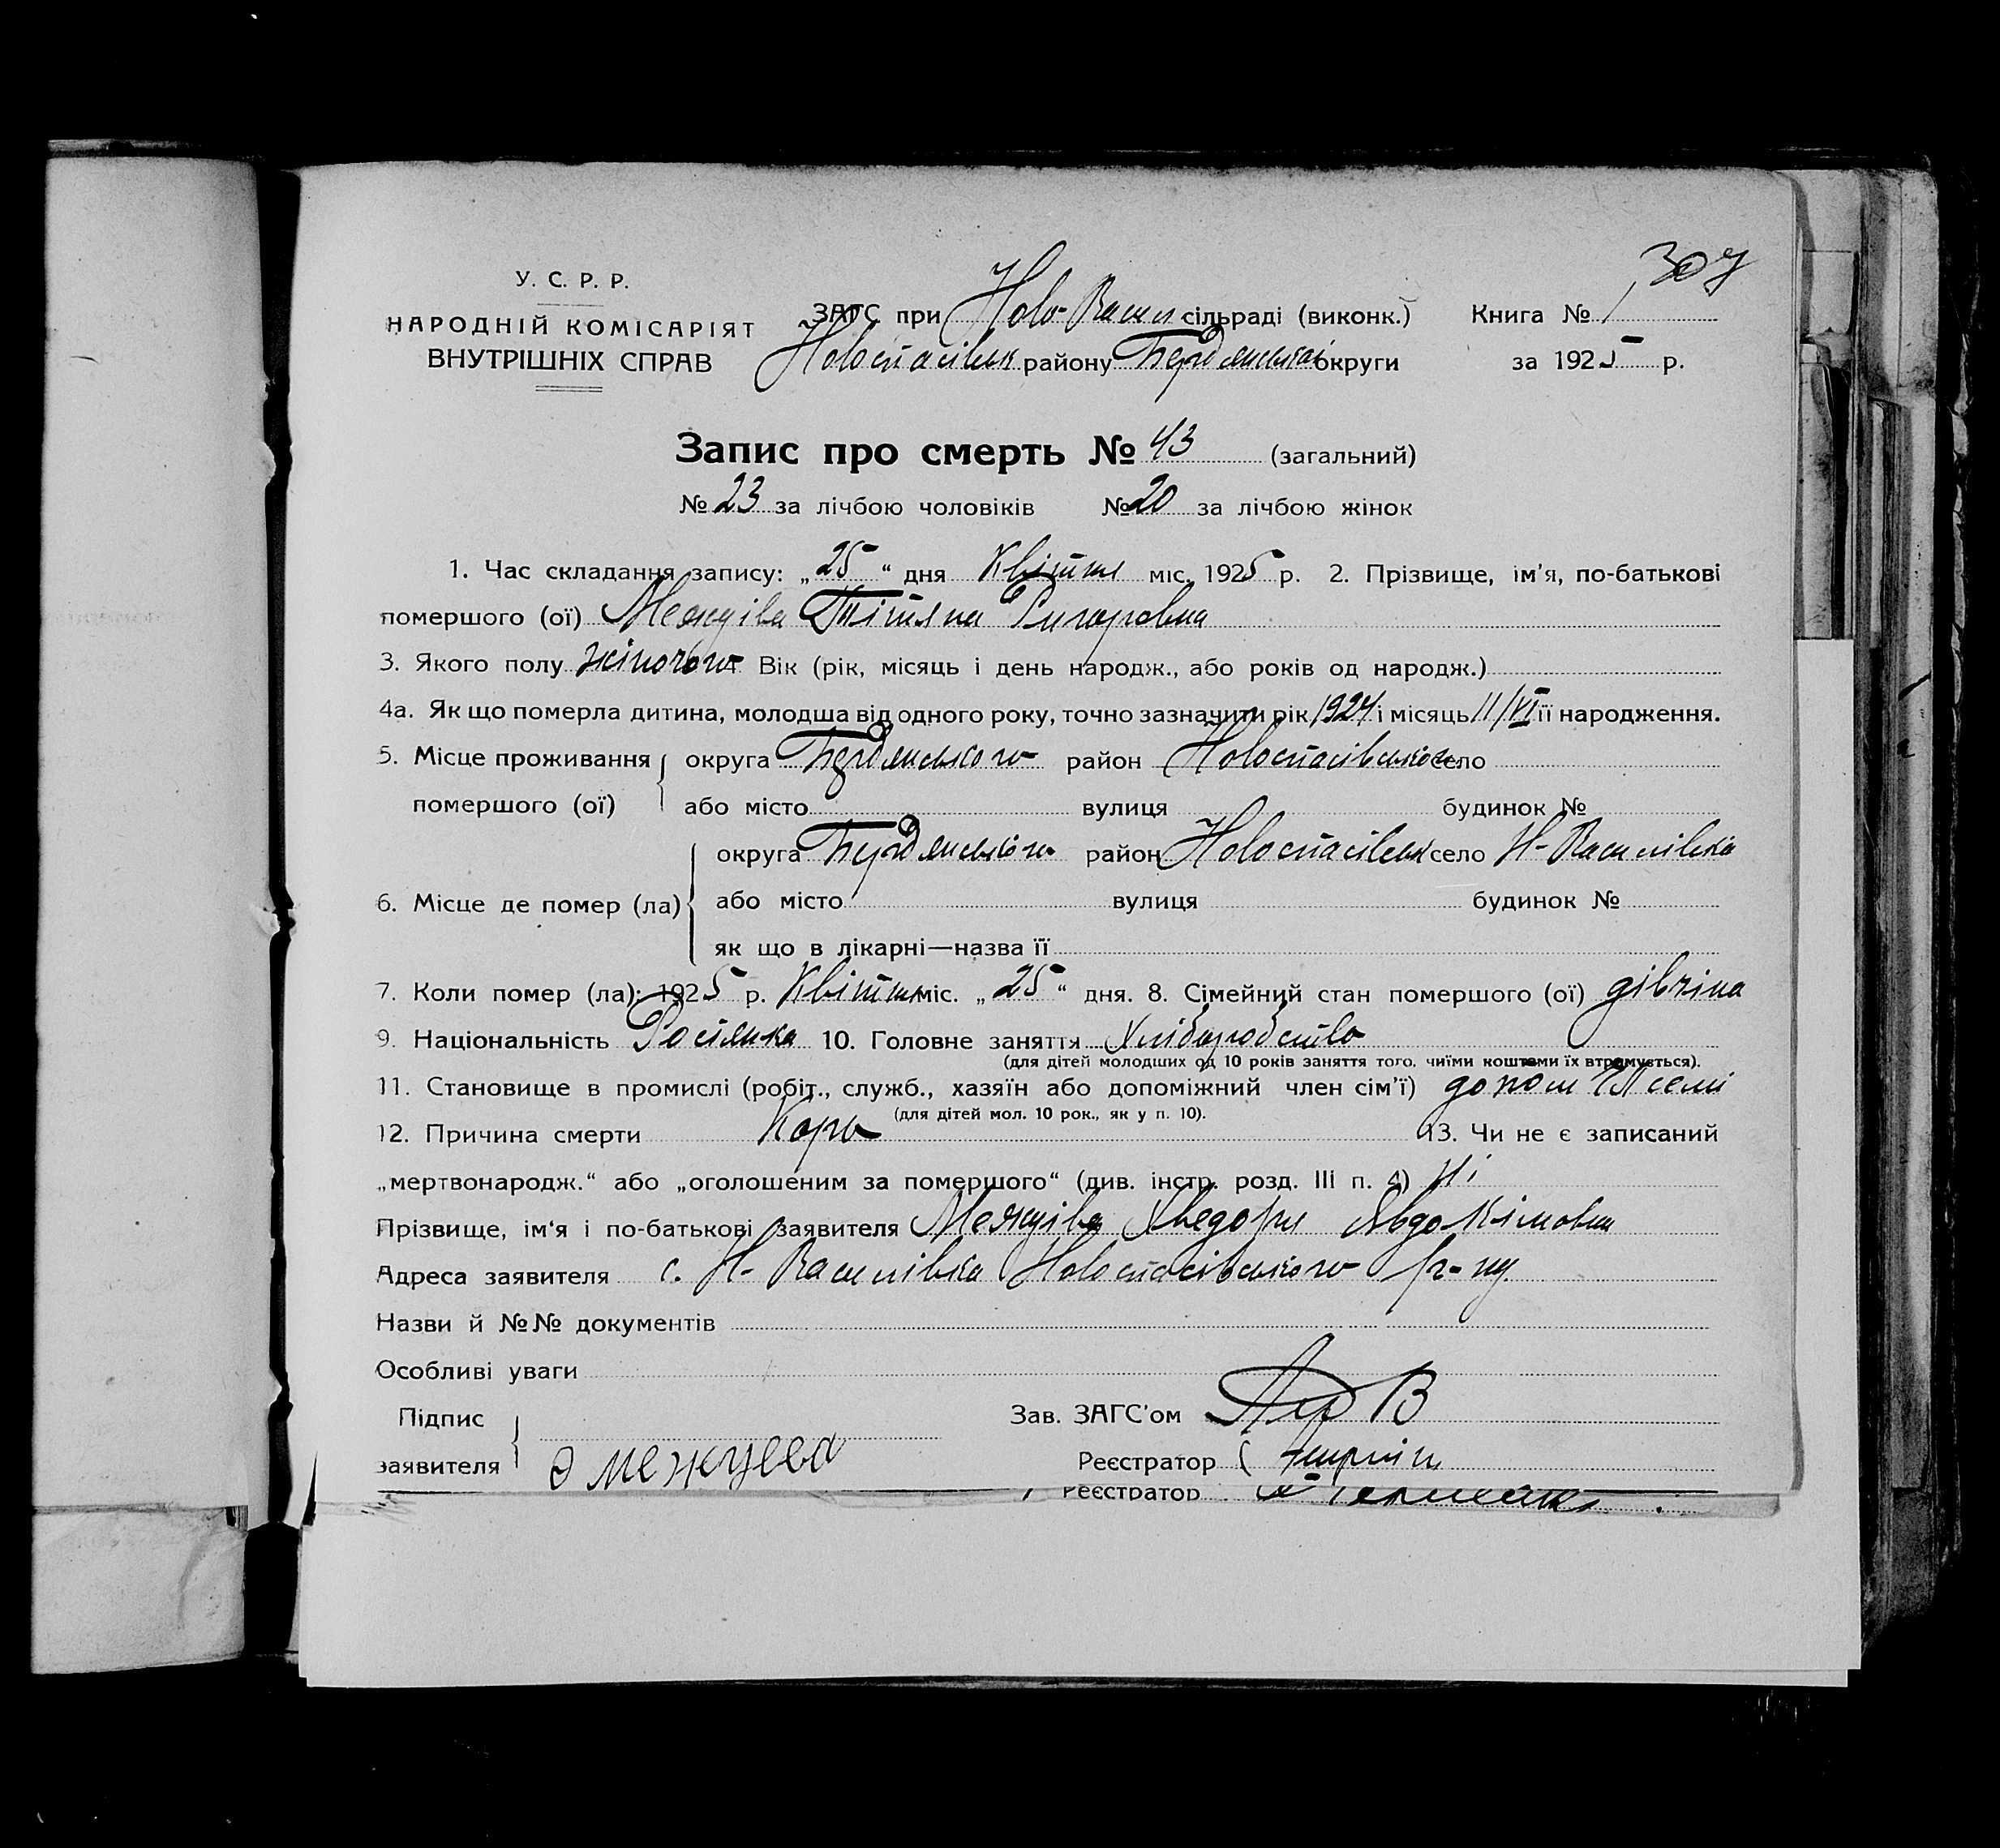 307
У. С. Р. Р.
НАРОДНІЙ КОМІСАРІЯТ
ВНУТРІШНІХ СПРАВ
ЗАГС при Ново-Васил сільраді (виконк.) Книга № 1
Новоспасівськ району Бердянської округи за 1925 р.
Запис про смерть № 43 (загальний)
№ 23 за лічбою чоловіків № 20 за лічбою жінок
1. Час складання запису: „25“ дня Квітня міс. 1925 р. 2. Прізвище, ім'я, по-батькові
помершого (ої) Межуїва Тітяна Григоровна
3. Якого полу жіночого Вік (рік, місяць і день народж., або років од народж.)
4а. Як що померла дитина, молодша від одного року, точно зазначити рік 1924 і місяць 11/VI її народження.
5. Місце проживання округа Бердянського район Новоспасівського село
помершого (ої) або місто вулиця будинок №
округа Бердянського район Новоспасівськ село Н-Василівка
6. Місце де помер (ла) або місто вулиця будинок №
як що в лікарні—назва її
7. Коли помер (ла): 1925 р. Квітня міс. „25“ дня. 8. Сімейний стан помершого (ої) дівчина
9. Національність Росіянка 10. Головне заняття Хліборобство
(для дітей молодших од 10 років заняття того, чиїми коштами їх втримується).
11. Становище в промислі (робіт., служб., хазяїн або допоміжний член сім'ї) допом член семі
(для дітей мол. 10 рок., як у п. 10).
12. Причина смерти Корь 13. Чи не є записаний
„мертвонародж.“ або „оголошеним за помершого“ (див. інстр. розд. III п. 4) Ні
Прізвище, ім'я і по-батькові заявителя Межуїва Хведора Явдокімовна
Адреса заявителя с. Н-Василівка Новоспасівського р-ну
Назви й №№ документів
Особливі уваги
Підпис
заявителя Э Межуева
Зав. ЗАГС'ом
Реєстратор
Реєстратор